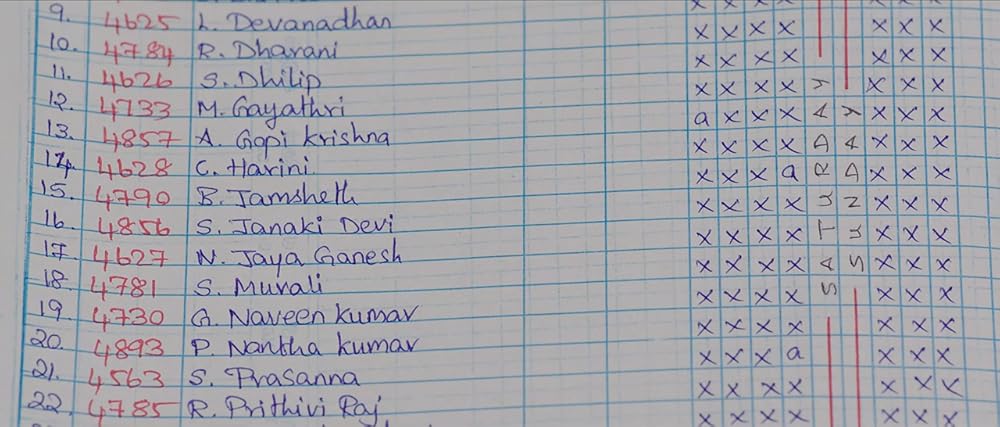 9. 4625 L. Devanadhan x x x x x x x
10. 4784 R. Dharani x x x x x x x
11. 4626 S. Dhilip x x x x x x x
12. 4733 M. Gayathri a x x x x x x
13. 4857 A. Gopi Krishna x x x x x x x
14. 4628 C. Harini x x x a x x x
15. 4790 B. Jamsheth x x x x x x x
16. 4856 S. Janaki Devi x x x x x x x
17. 4627 N. Jaya Ganesh x x x x x x x
18. 4781 S. Murali x x x x x x x
19. 4730 G. Naveen Kumar x x x x x x x
20. 4893 P. Nantha Kumar x x x a x x x
21. 4563 S. Prasanna x x x x x x x
22. 4785 R. Prithivi Raj x x x x x x x
SATURDAY
SUNDAY